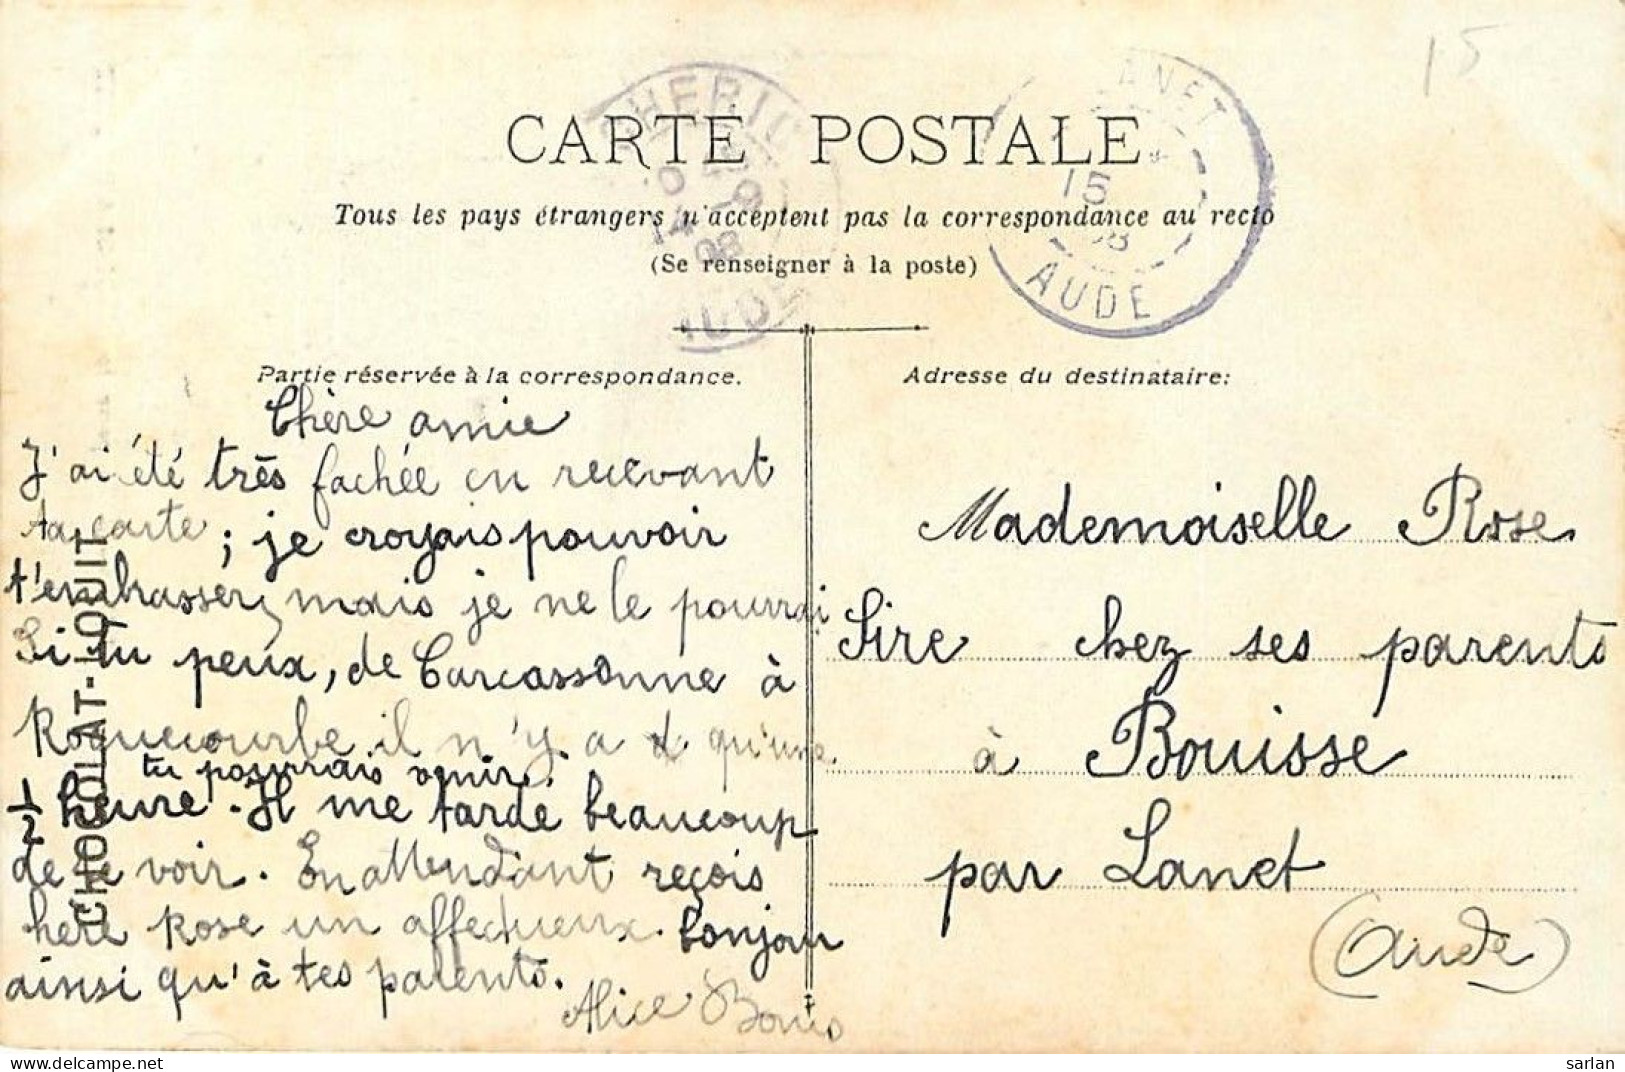 15
CARTE POSTALE
Tous les pays étrangers n'acceptent pas la correspondance au recto
(Se renseigner à la poste)
ANET
15
08
AUDE
08
Partie réservée à la correspondance.
Chère amie
J'ai été très fachée en recevant
ta carte ; je croyais pouvoir
t'embrasser, mais je ne le pourrai
Si tu peux, de Carcassonne à
Roquecourbe il n'y a qu'une
tu pourrais venir.
1/2 heure. Il me tarde beaucoup
de te voir. En attendant reçois
hère Rose un affectueux bonjour
ainsi qu'à tes parents.
Alice Bonis
CHOCOLAT-LOUIT
Adresse du destinataire:
Mademoiselle Rose
Sire chez ses parents
à Bouisse
par Lanet
(Aude)
sarlan